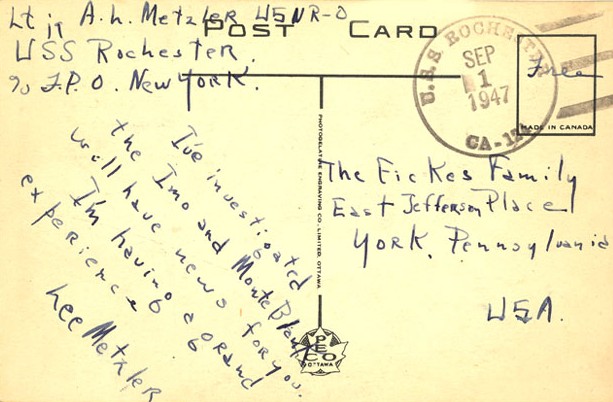 Lt jg A. L. Metzler USNR-O
USS Rochester.
℅ F.P.O. New York.
POST CARD
U.S.S. ROCHESTER
SEP
1
1947
CA-12
Free
MADE IN CANADA
I've investigated
the Imo and Monte Blanc
will have news for you.
I'm having a grand
experience
Lee Metzler
PHOTOGELATINE ENGRAVING CO. LIMITED, OTTAWA
PECO
OTTAWA
The Fickes Family
East Jefferson Place
York, Pennsylvania
USA.